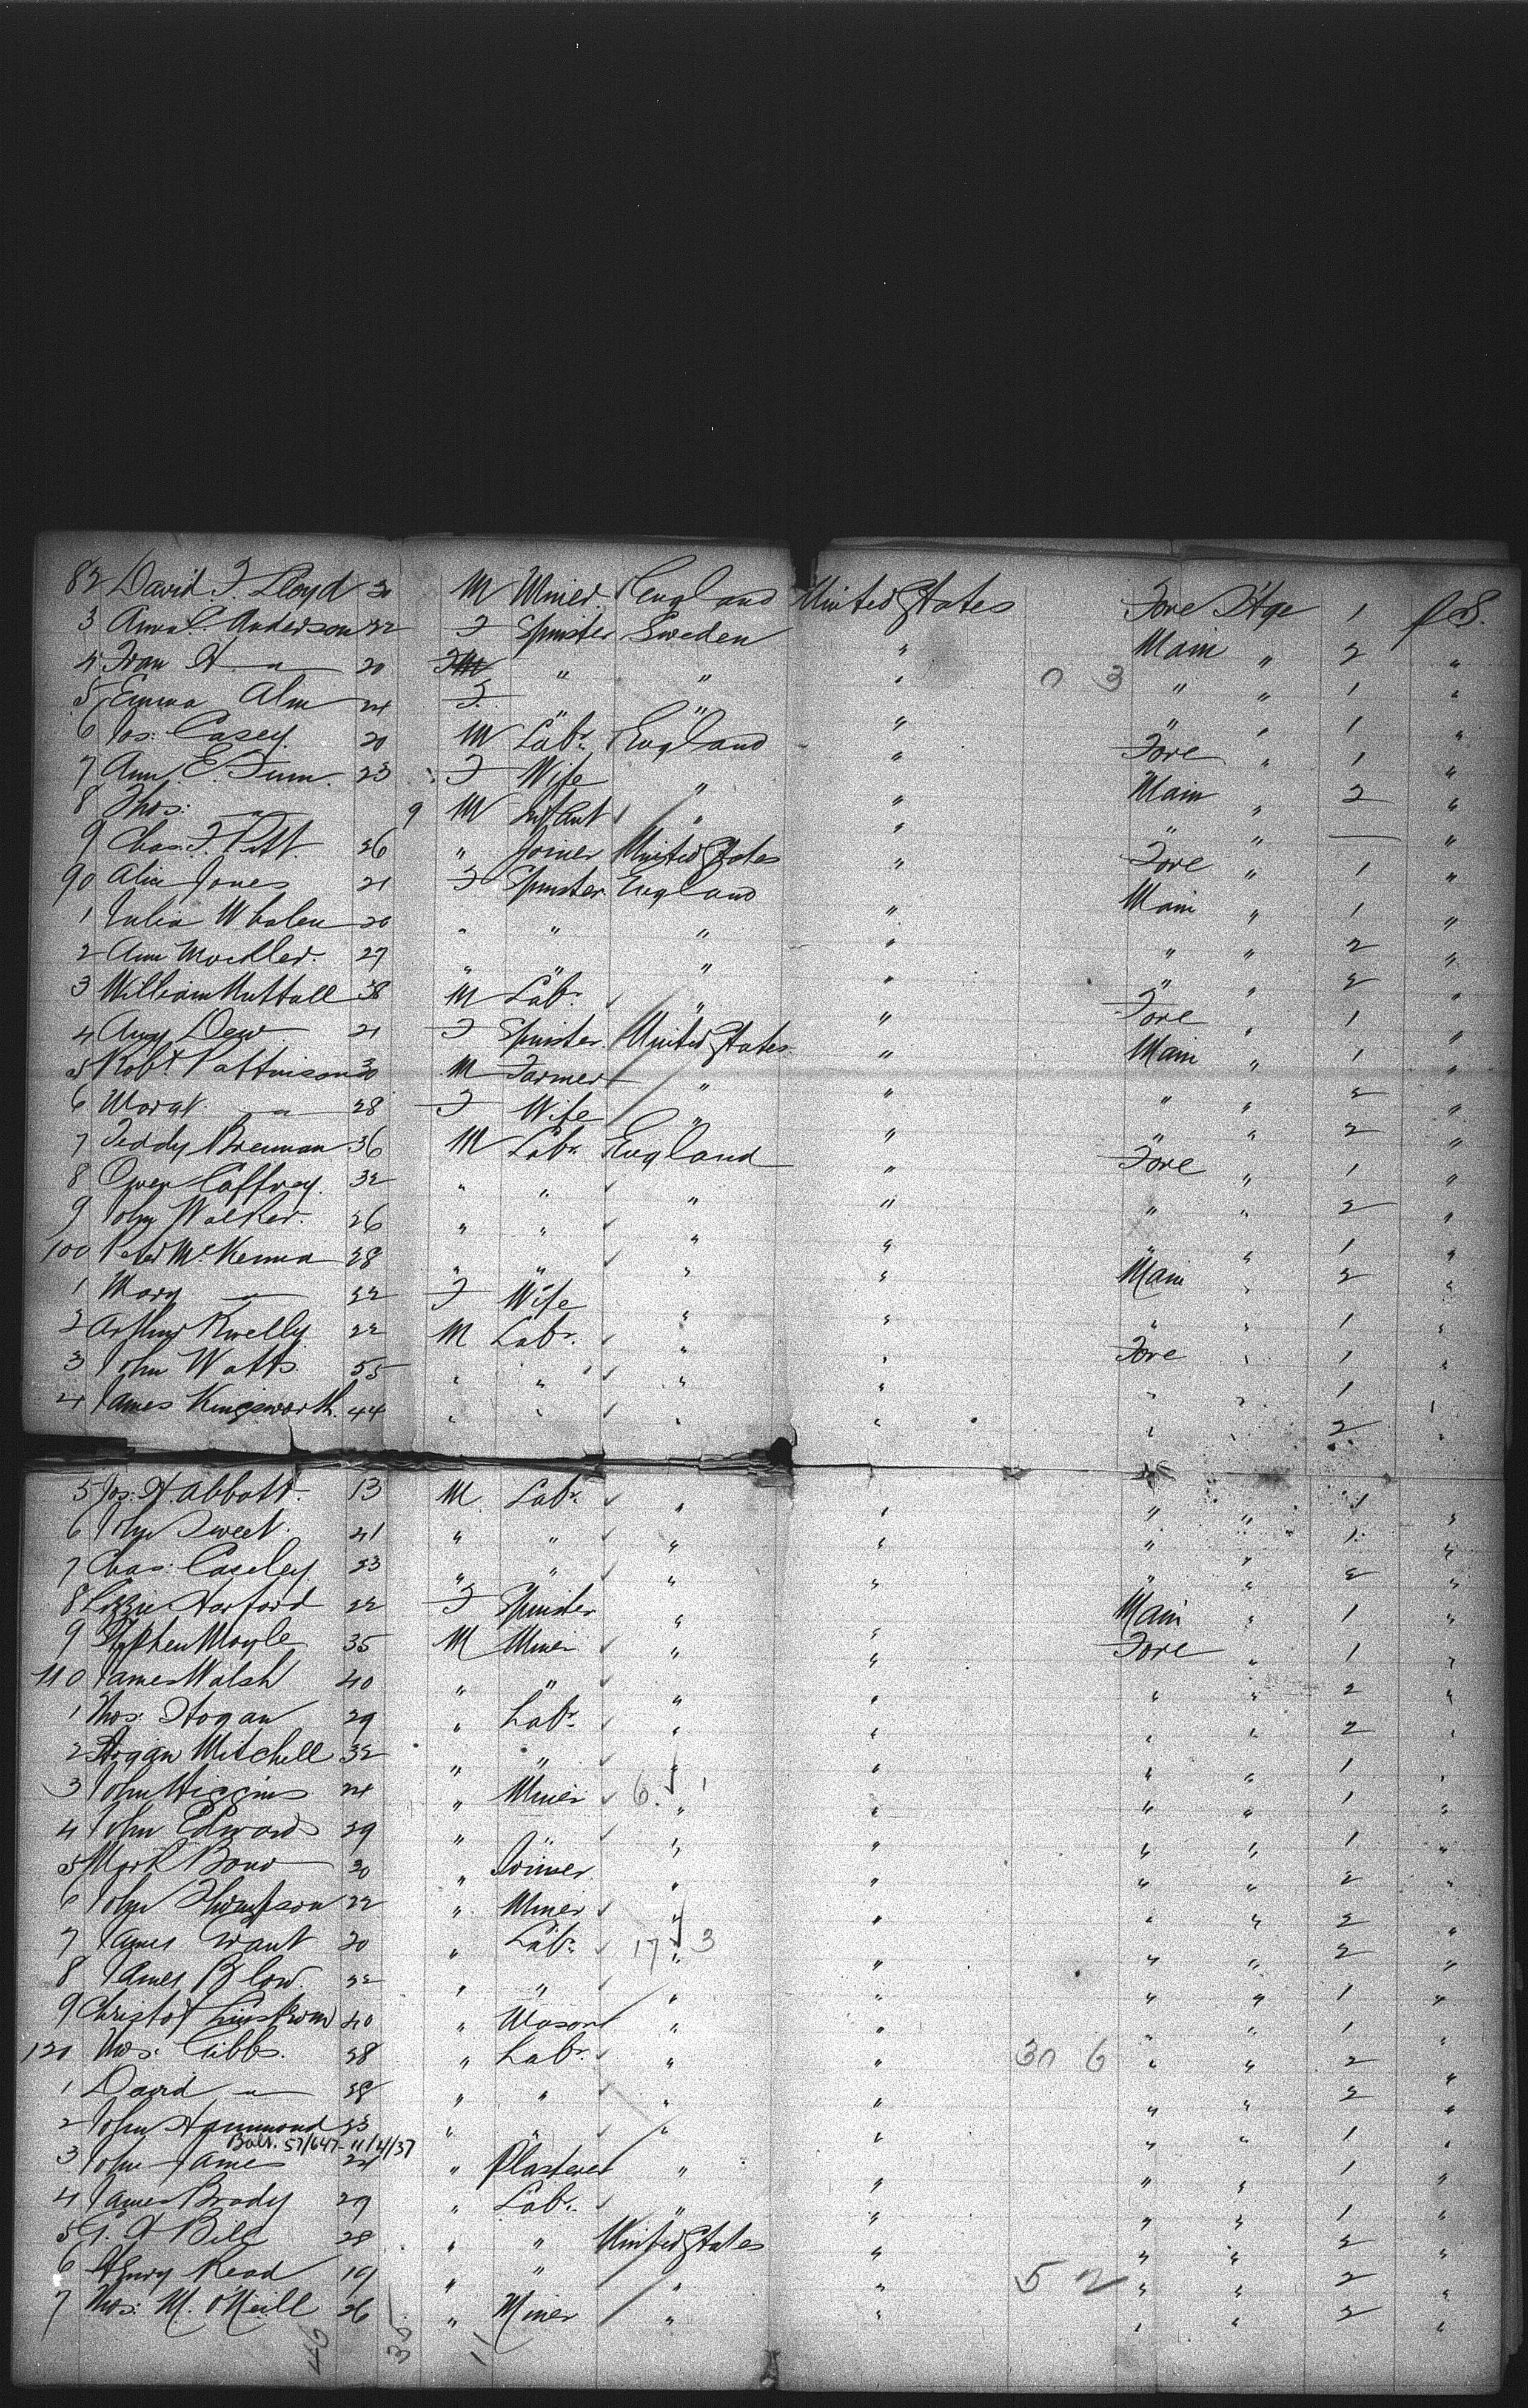 82 David. J. Lloyd 30 M Miner England United States Fore Stge 1 P.S.
3 Anna C. Anderson 22 F Spinster Sweden " Main " 2 "
4 Fran A — " — 20 F " " " " " 1 "
5 Emma Alm 24 F " " " " " 1 "
6 Jos: Casey 20 M Labr England " Fore " 1 "
7 Ann E. 23 F Wife " " Main " 2 "
8 Thos: — " — 9 M Infant " " " " — "
9 Chas: F. Pitt 26 " Joiner United States " Fore " 1 "
90 Alice Jones 21 F Spinster England " Main " 1 "
1 Julia Whalen 20 " " " " " " 2 "
2 Ann 27 " " " " " " 2 "
3 William Nuttall 38 M Labr " " Fore " 1 "
4 Amy Dew 21 F Spinster United States " Main " 1 "
5 Robt. Pattinson 30 M Farmer " " " " 2 "
6 Margt. — " — 28 F Wife " " " " 2 "
7 Teddy Brennan 36 M Labr England " Fore " 1 "
8 Owen Caffrey 32 " " " " " " 2 "
9 John Walker 26 " " " " " " 1 "
100 Peter McKenna 28 " " " " Main " 2 "
1 Mary — " — 22 F Wife " " " " 1 "
2 Arthur Kwelly 22 M Labr " " Fore " 1 "
3 John Watts 55 " " " " " " 1 "
4 James Kingsworth 44 " " " " " " 2 "
5 Jos: H. Abbott 13 M Labr " " " " 1 "
6 John Sweet 21 " " " " " " 1 "
7 Chas: Caseley 23 " " " " " " 2 "
8 Lizzie Harford 22 F Spinster " " Main " 1 "
9 Stephen Moyle 35 M Miner " " Fore " 1 "
110 James Walsh 40 " " " " " " 2 "
1 Thos: Hogan 29 " Labr " " " " 2 "
2 Hogan Mitchell 32 " " " " " " 1 "
3 John Higgins 24 " Miner 6 1 " " " " 1 "
4 John Edwards 29 " " " " " " 1 "
5 Mark Bond 30 " Joiner " " " " 2 "
6 John Thompson 22 " Miner " " " " 2 "
7 James Want 20 " Labr 17 3 " " " " 2 "
8 James Blow 22 " " " " " " 1 "
9 Christof 40 " Mason " " " " 1 "
120 Thos: Gibbs 28 " Labr " " 30 6 " " 2 "
1 David — " — 28 " " " " " " 2 "
2 John Hammond 23 " " " " " " 1 "
Balt. 57/647- 11/4/37
3 John James 24 " Plasterer " " " " 1 "
4 James Brady 29 " Labr " " " " 1 "
5 G. H Bill 28 " " United States " " " 2 "
6 Henry Read 19 " " " " 5 2 " " 2 "
7 Thos: M. O'Neill 26 " Miner " " " " 2 "